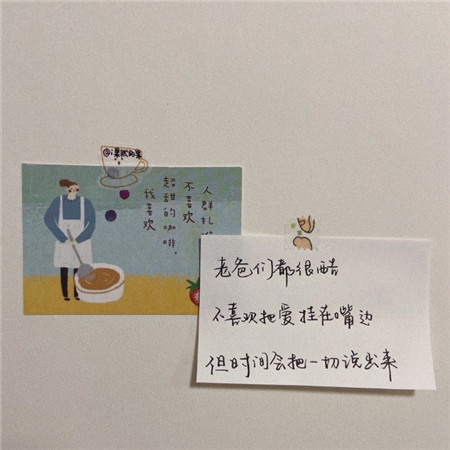 我喜欢
超甜的咖啡，
不喜欢
人群扎
老爸们都很酷
不喜欢把爱挂在嘴边
但时间会把一切说出来